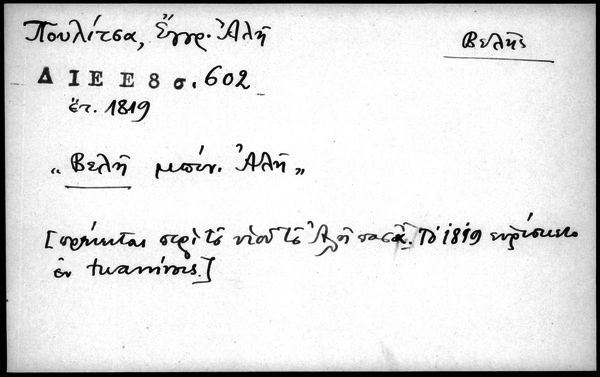 Πουλίτσα, Ἔγγρ. Ἀλῆ
Βελῆς
Δ Ι Ε Ε 8 σ. 602
ἔτ. 1819
„Βελῆ μπέν. Ἀλῆ„
[πρόκειται περὶ τοῦ υἱοῦ τοῦ Ἀλῆ πασᾶ. Τὸ 1819 εὑρίσκετο
ἐν Ἰωαννίνοις.]